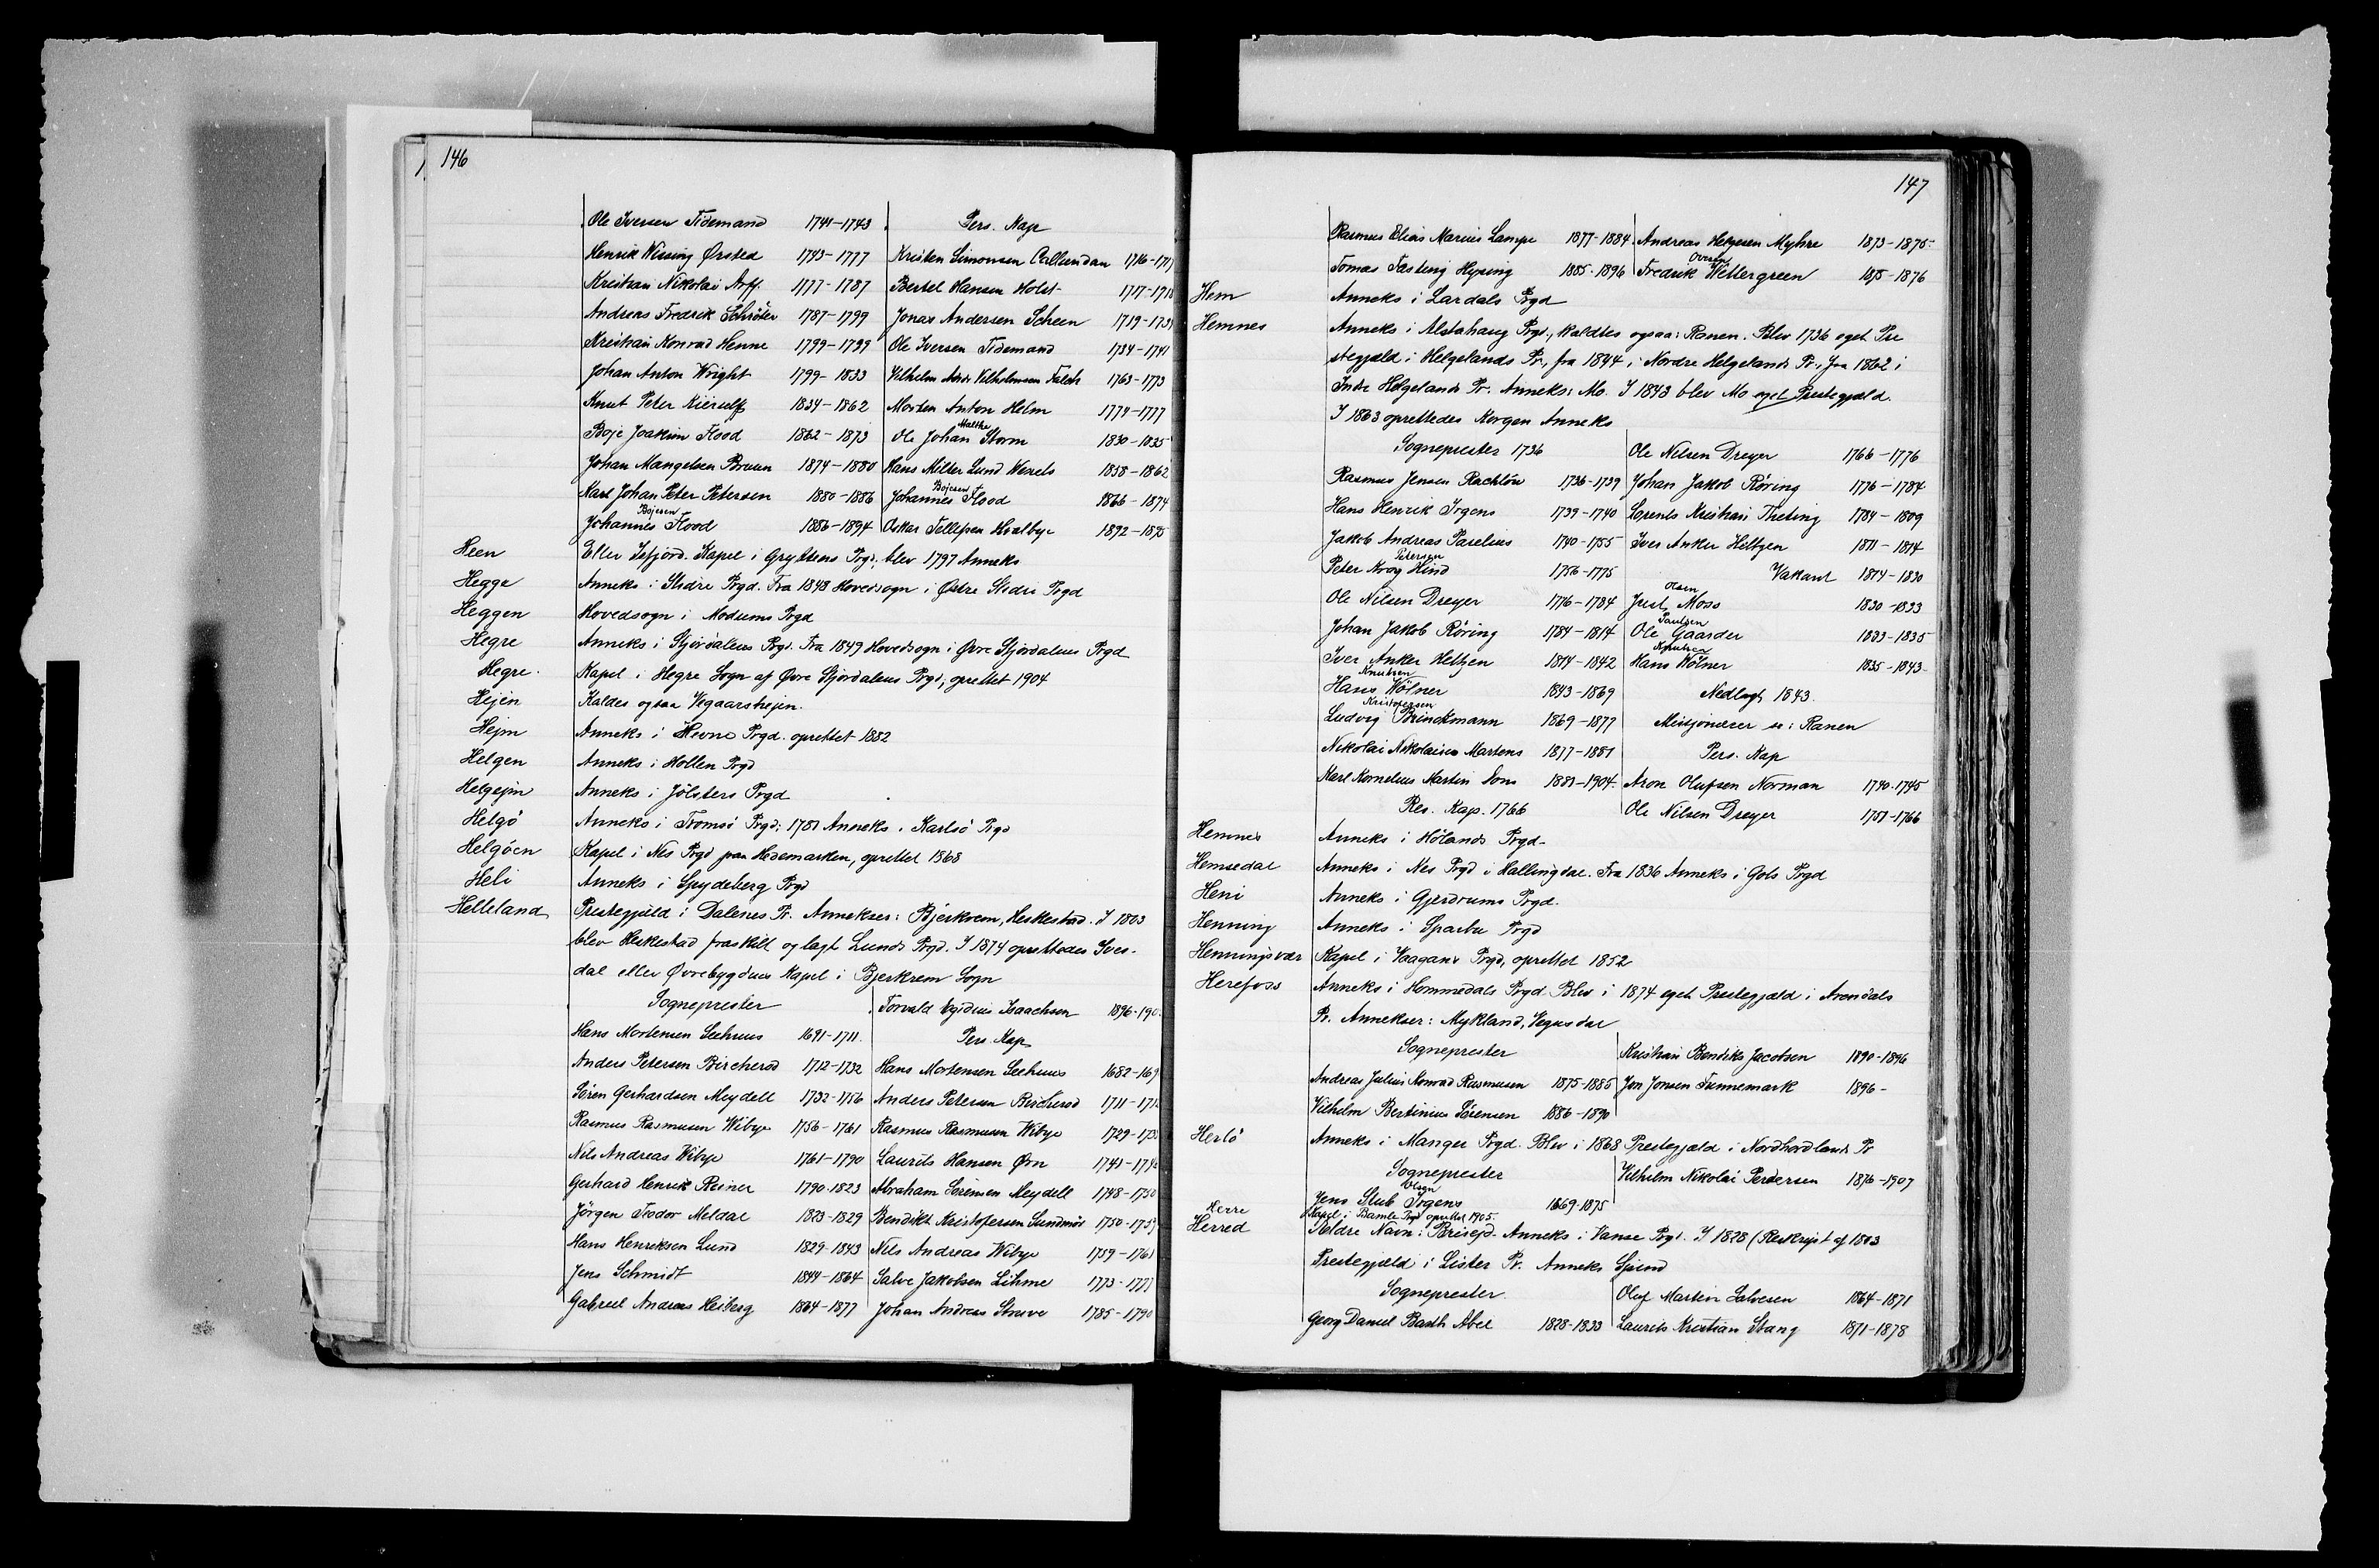 146
Ole Iversen Tidemand 1741-1743 Pers. Kap
Henrik Wissing Ørsted 1743-1777 Kristen Simonsen Callundan 1716-1717
Kristian Nikolai Arff. 1777-1787 Bertel Hansen Holst 1717-1718
Andreas Fredrik Schröter 1787-1799 Jonas Andersen Scheen 1719-173
Kristian Konrad Henne 1799-1799 Ole Iversen Tidemand 1734-1741
Johan Anton Wright 1799-1833 Vilhelm Vilhelmsen Falch 1763-1773
Knut Peter Kierulf 1834-1862 Morten Anton Helm 1774-1777
Boje Joakim Flood 1862-1873 Ole Johan Malthe Storm 1830-1835
Johan Mangelsen Bruun 1874-1880 Hans Milter Lund Wessels 1858-1862
Karl Johan Peter Petersen 1880-1886 Johannes Bojesen Flood 1866-1874
Johannes Bojesen Flood 1886-1894 Oskar Tellefsen Hvalbye 1892-1895
Heen Eller Isfjord. Kapel i Gryttens Prgd; blev 1797 Anneks
Hegge Anneks i Slidre Prgd. Fra 1848 Hovedsogn i Østre Slidre Prgd
Heggen Hovedsogn i Modums Prgd
Hegre Anneks i Stjørdalens Prgd. Fra 1849 Hovedsogn i Øvre Stjørdalens Prgd
Hegre. Kapel i Hegre Sogn af Øvre Stjørdalens Prgd; oprettet 1904
Hejen Kaldes ogsaa Vegaarshejen.
Hejm Anneks i Hevne Prgd. oprettet 1882
Helgen Anneks i Hollen Prgd
Helgejm Anneks i Jölsters Prgd
Helgö Anneks i Tromsö Prgd; 1781 Anneks i Karlsö Prgd
Helgöen Kapel i Nes Prgd paa Hedemarken, oprettet 1868
Heli Anneks i Spydeberg Prgd
Helleland Prestegjæld i Dalenes Pr. Annekser: Bjerkrem, Heskestad. I 1803
blev Heskestad fraskilt og lagt Lunds Prgd. I 1874 oprettedes Ives-
dal eller Øvrebygdens Kapel i Bjerkrem Sogn
Sogneprester Torvald Egidius Isaachsen 1896-190
Hans Mortensen Seehuus 1691-1711. Pers. Kap
Anders Petersen Bircherod 1712-1732 Hans Mortensen Seehuus 1682-169
Sören Gerhardsen Meydell 1732-1756 Anders Petersen Bircherod 1711-171
Rasmus Rasmusen Wibye 1756-1761 Rasmus Rasmusen Wibye 1729-173
Nils Andreas Wibye 1761-1790 Laurits Hansen Örn 1741-174
Gerhard Henrik Reiner 1790-1823 Abraham Sörensen Meydell 1748-1750
Jörgen Teodor Meldal 1823-1829 Bendikt Kristofersen Sundmör 1750-1759
Hans Henriksen Lund 1829-1843 Nils Andreas Wibye 1759-1761
Jens Schmidt 1844-1864 Salve Jakobsen Lihme 1773-1777
Gabriel Andreas Heiberg 1864-1877 Johan Andreas Struve 1785-1790
147
Rasmus Elias Marius Lampe 1877-1884 Andreas Helgesen Myhre 1873-1875
Tomas Fasting Hysing 1885-1896 Fredrik Oversen Wettergreen 1875-1876
Hem Anneks i Lardals Prgd
Hemnes Anneks i Alstahaug Prgd., kaldtes ogsaa: Ranen. Blev 1736 eget Pre
stegjæld i Helgelands Pr., fra 1844 i Nordre Helgelands Pr., fra 1862 i
Indre Helgelands Pr. Anneks: Mo. I 1843 blev Mo eget Prestegjæld.
I 1863 oprettedes Korgen Anneks
Sogneprester 1736 Ole Nilsen Dreyer 1766-1776
Rasmus Jensen Rachlöw 1736-1739 Johan Jakob Röring 1776-1784
Hans Henrik Irgens 1739-1740 Lorents Kristian Theting 1784-1809
Jakob Andreas Parelius 1740-1755 Iver Anker Heltzen 1811-1814
Peter Krog Petersen Hind 1756-1775 Vakant 1814-1830
Ole Nilsen Dreyer 1776-1784 Just Olsen Moss 1830-1833
Johan Jakob Röring 1784-1814 Ole Paulsen Gaarder 1833-1835
Iver Anker Heltzen 1814-1842 Hans Knutsen Wölner 1835-1843
Hans Knutsen Wölner 1843-1869 Nedlagt 1843.
Ludvig Kristofersen Brinckmann 1869-1877 Misjonærer se: Ranen
Nikolai Nikolaisen Martens 1877-1881 Pers. Kap
Karl Kornelius Martin Dons 1881-1904. Aron Olufsen Norman 1740-1745
Res. Kap. 1766 Ole Nilsen Dreyer 1751-1766
Hemnes Anneks i Hölands Prgd.
Hemsedal Anneks i Nes Prgd i Hallingdal. Fra 1836 Anneks i Gols Prgd
Heni Anneks i Gjerdrums Prgd.
Henning Anneks i Sparbu Prgd
Henningsvær Kapel i Vaagans Prgd, oprettet 1852
Herefoss Anneks i Hommedals Prgd. Blev i 1874 eget Prestegjæld i Arendals
Pr. Annekser: Mykland, Vegusdal
Sogneprester Kristian Bendiks Jacobsen 1890-1896
Andreas Julius Konrad Rasmusen 1875-1885 Jon Jonsen Tunnemark 1896-
Vilhelm Bertinius Sörensen 1886-1890
Herlö Anneks i Manger Prgd. Blev i 1868 Prestegjæld i Nordhordlands Pr
Sogneprester Vilhelm Nikolai Perdersen 1876-1907
Jens Stub Olsen Irgens 1869-1875
Herre Kapel i Bamle Prgd oprettet 1905.
Herred Ældre Navn: Brisejd. Anneks i Vanse Prgd. I 1828 (Reskript af 1803
Prestegjæld i Lister Pr. Anneks Spind
Sogneprester Oluf Martin Salvesen 1864-1871
Georg Daniel Barth Abel 1828-1833 Laurits Kristian Stang 1871-1878